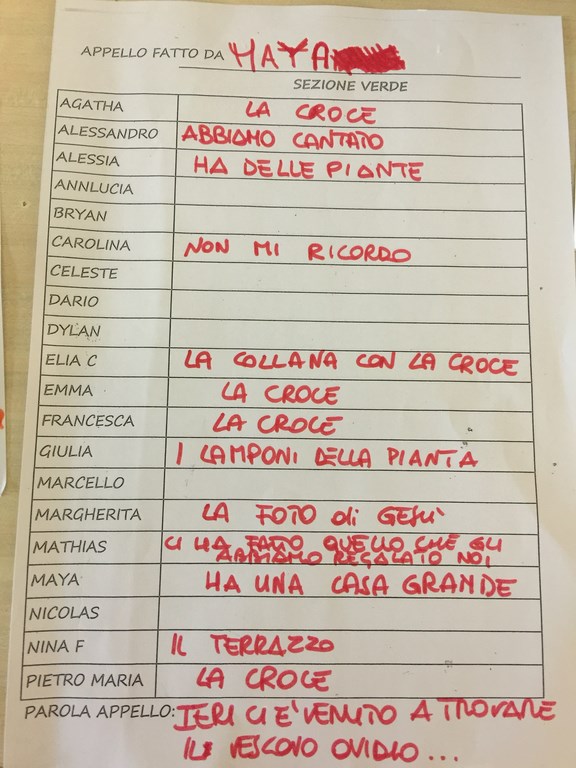 APPELLO FATTO DA MAYA
SEZIONE VERDE
AGATHA LA CROCE
ALESSANDRO ABBIAMO CANTATO
ALESSIA HA DELLE PIANTE
ANNLUCIA
BRYAN
CAROLINA NON MI RICORDO
CELESTE
DARIO
DYLAN
ELIA C LA COLLANA CON LA CROCE
EMMA LA CROCE
FRANCESCA LA CROCE
GIULIA I LAMPONI DELLA PIANTA
MARCELLO
MARGHERITA LA FOTO di GESU'
MATHIAS CI HA FATTO QUELLO CHE GLI
ABBIAMO REGALATO NOI
MAYA HA UNA CASA GRANDE
NICOLAS
NINA F IL TERRAZZO
PIETRO MARIA LA CROCE
PAROLA APPELLO: IERI CI E' VENUTO A TROVARE
IL VESCOVO OVIDIO...